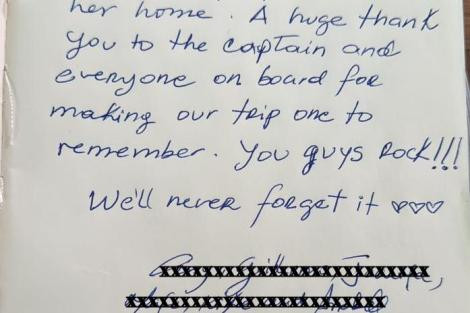 her home. A huge thank
you to the captain and
everyone on board for
making our trip one to
remember. You guys Rock!!!
We'll never forget it ♡♡♡